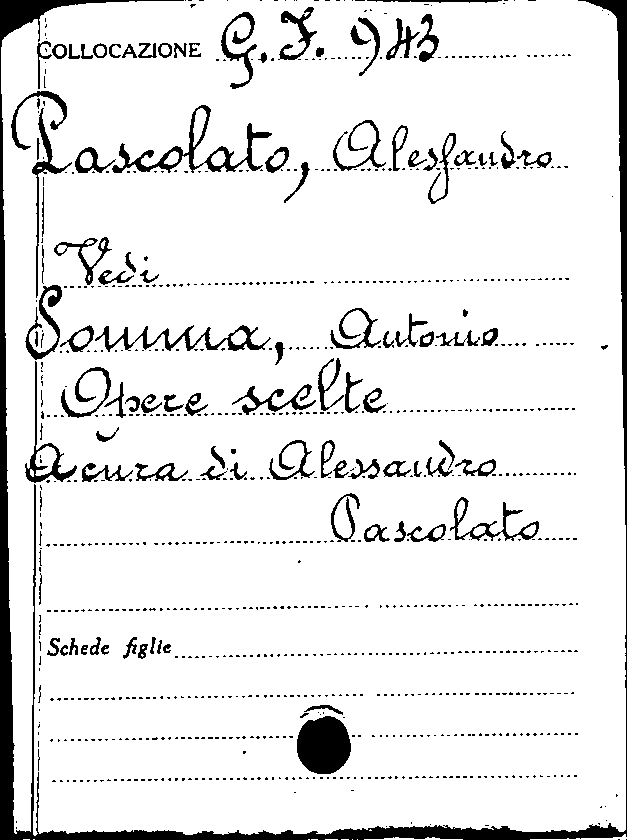 COLLOCAZIONE G. F. 943
Pascolato, Alessandro
Vedi
Somma, Antonio
Opere scelte
A cura di Alessandro
Pascolato
Schede figlie